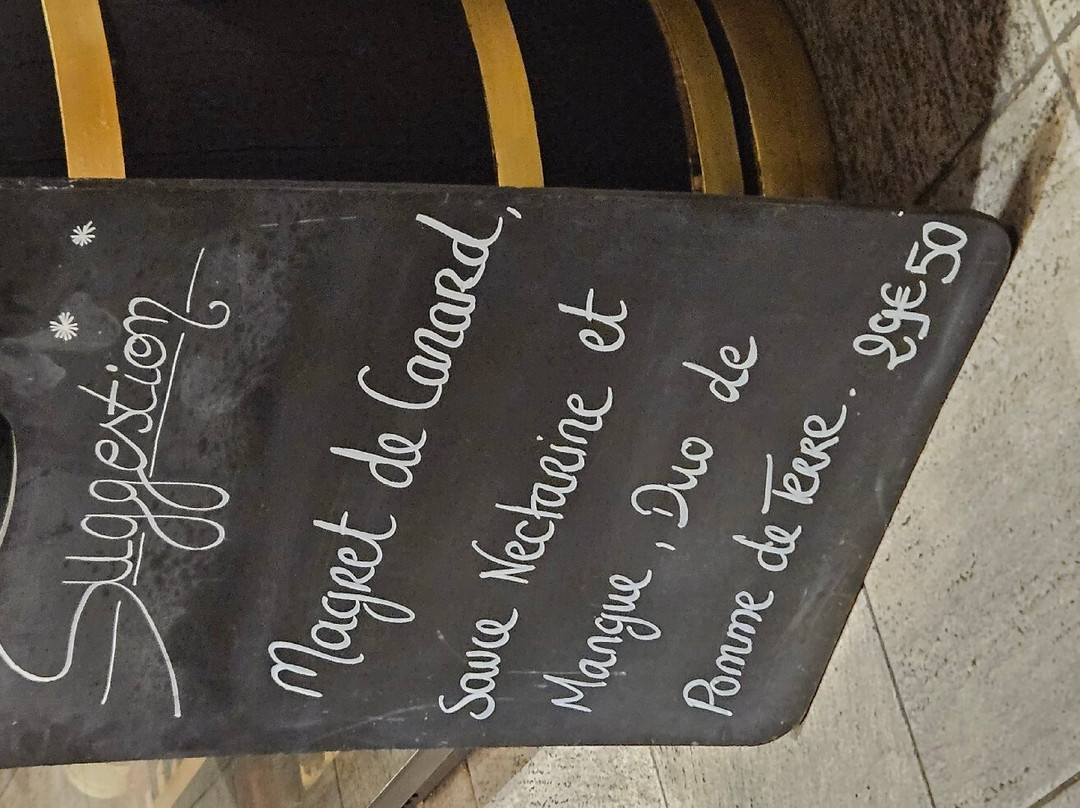 Suggestion
Magret de Canard,
Sauce Nectarine et
Mangue, Duo de
Pomme de Terre. 29€50